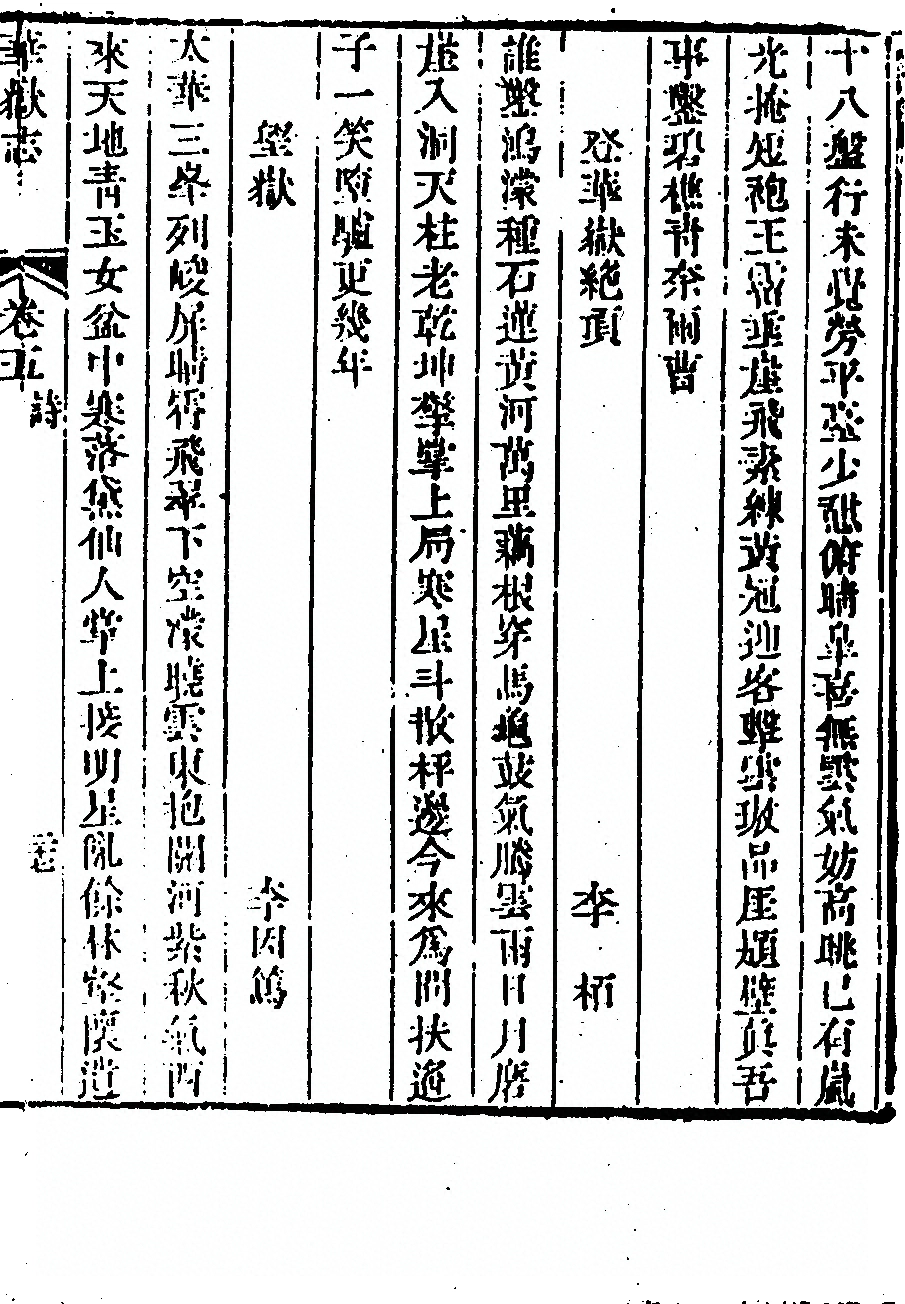 十八盤行未覺勞平臺少憇俯晴皐喜無雲氣妨高眺已有嵐
光掩短袍玉溜垂崖飛素練黃冠迎客擊雲璈品厓題壁眞吾
事鑿碧樵青奈爾曹
登華嶽絕頂 李栢
誰鑿鴻濛種石蓮黃河萬里藕根穿馬龜鼓氣騰雲雨日月磨
崖入洞天柱老乾坤擎掌上局寒星斗散枰邊今來爲問扶遙
子一笑墮驢更幾年
望嶽 李因篤
太華三峯列峻屏晴霄飛翠下空濛曉雲東抱關河紫秋氣西
來天地青玉女盆中寒落黛仙人掌上接明星亂餘林壑懷
華嶽志 卷五 詩